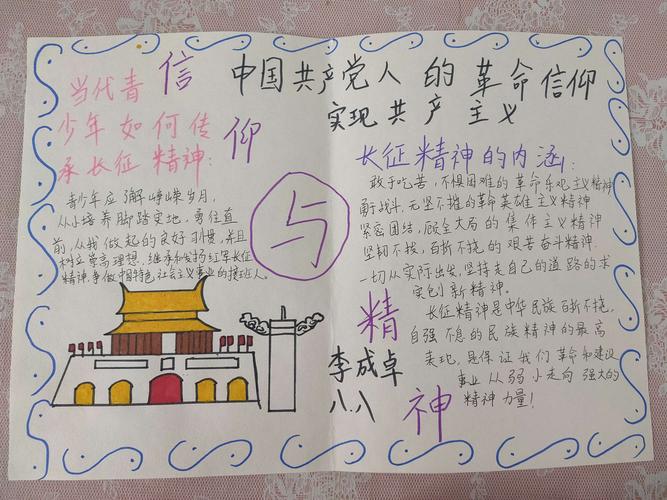 信仰
与
精神
中国共产党人的革命信仰
实现共产主义
当代青
少年如何传
承长征精神:
青少年应了解峥嵘岁月,
从小培养脚踏实地,勇往直
前,从我做起的良好习惯,并且
树立崇高理想,继承和发扬红军长征
精神,争做中国特色社会主义事业的接班人。
长征精神的内涵:
敢于吃苦,不惧困难的革命乐观主义精神
勇于战斗,无坚不摧的革命英雄主义精神
紧密团结,顾全大局的集体主义精神
坚韧不拔,百折不挠的艰苦奋斗精神.
一切从实际出发,坚持走自己的道路的求
实创新精神。
长征精神是中华民族百折不挠,
自强不息的民族精神的最高
表现,是保证我们革命和建设
事业从弱小走向强大的
精神力量!
李成卓
八.八